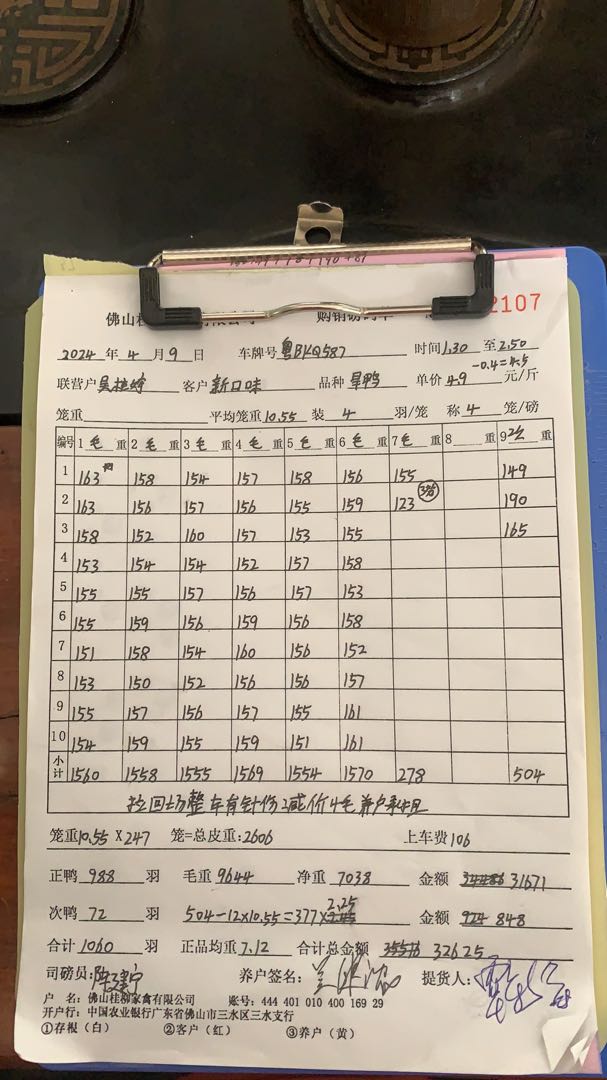 2107
2024 年 4 月 9 日 车牌号 粤BKQ587 时间 1.30 至 2.50
-0.4=4.5
联营户 客户 新口味 品种 旱鸭 单价 4.9 元/斤
笼重 平均笼重 10.55 装 4 羽/笼 称 4 笼/磅
编号 1 毛 重 2 毛 重 3 毛 重 4 毛 重 5 毛 重 6 毛 重 7 毛 重 8 重 9 重
1 163 158 154 157 158 156 155 149
2 163 156 157 156 155 159 123 190
3 158 152 160 157 153 155 165
4 153 154 154 152 157 158
5 155 155 157 156 157 153
6 155 159 156 159 156 158
7 151 158 154 160 156 152
8 153 150 152 156 156 157
9 155 157 156 157 155 161
10 154 159 155 159 151 161
小计 1560 1558 1555 1569 1554 1570 278 504
拉回场整车有针伤减价4毛养户承担
笼重 10.55 X 247 笼=总皮重: 2606 上车费 106
正鸭 988 羽 毛重 9644 净重 7038 金额 31671
次鸭 72 羽 504-12×10.55=377× 2.25 金额 924 848
合计 1060 羽 正品均重 7.12 合计总金额 32625
司磅员: 养户签名: 提货人:
户 名: 佛山桂柳家禽有限公司 账号: 444 401 010 400 169 29
开户行: 中国农业银行广东省佛山市三水区三水支行
①存根（白） ②客户（红） ③养户（黄）